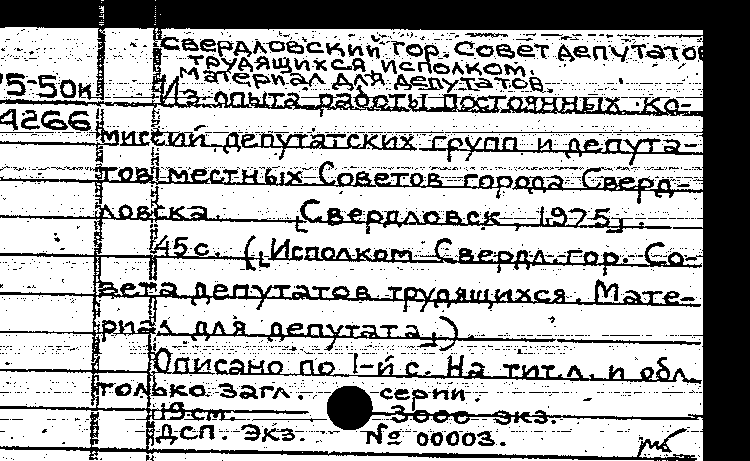 Свердловский гор. Совет депутатов
трудящихся исполком.
Материал для депутатов.
75-50к
Из опыта работы постоянных ко-
4266
миссий, депутатских групп и депута-
тов местных Советов города Сверд-
ловска. [Свердловск, 1975].
45 с. ([Исполком Свердл. гор. Со-
вета депутатов трудящихся. Мате-
риал для депутата]).
Описано по 1-й с. На тит. л. и обл.
только загл. серии.
19 см. 3000 экз.
ДСП. Экз. № 00003.